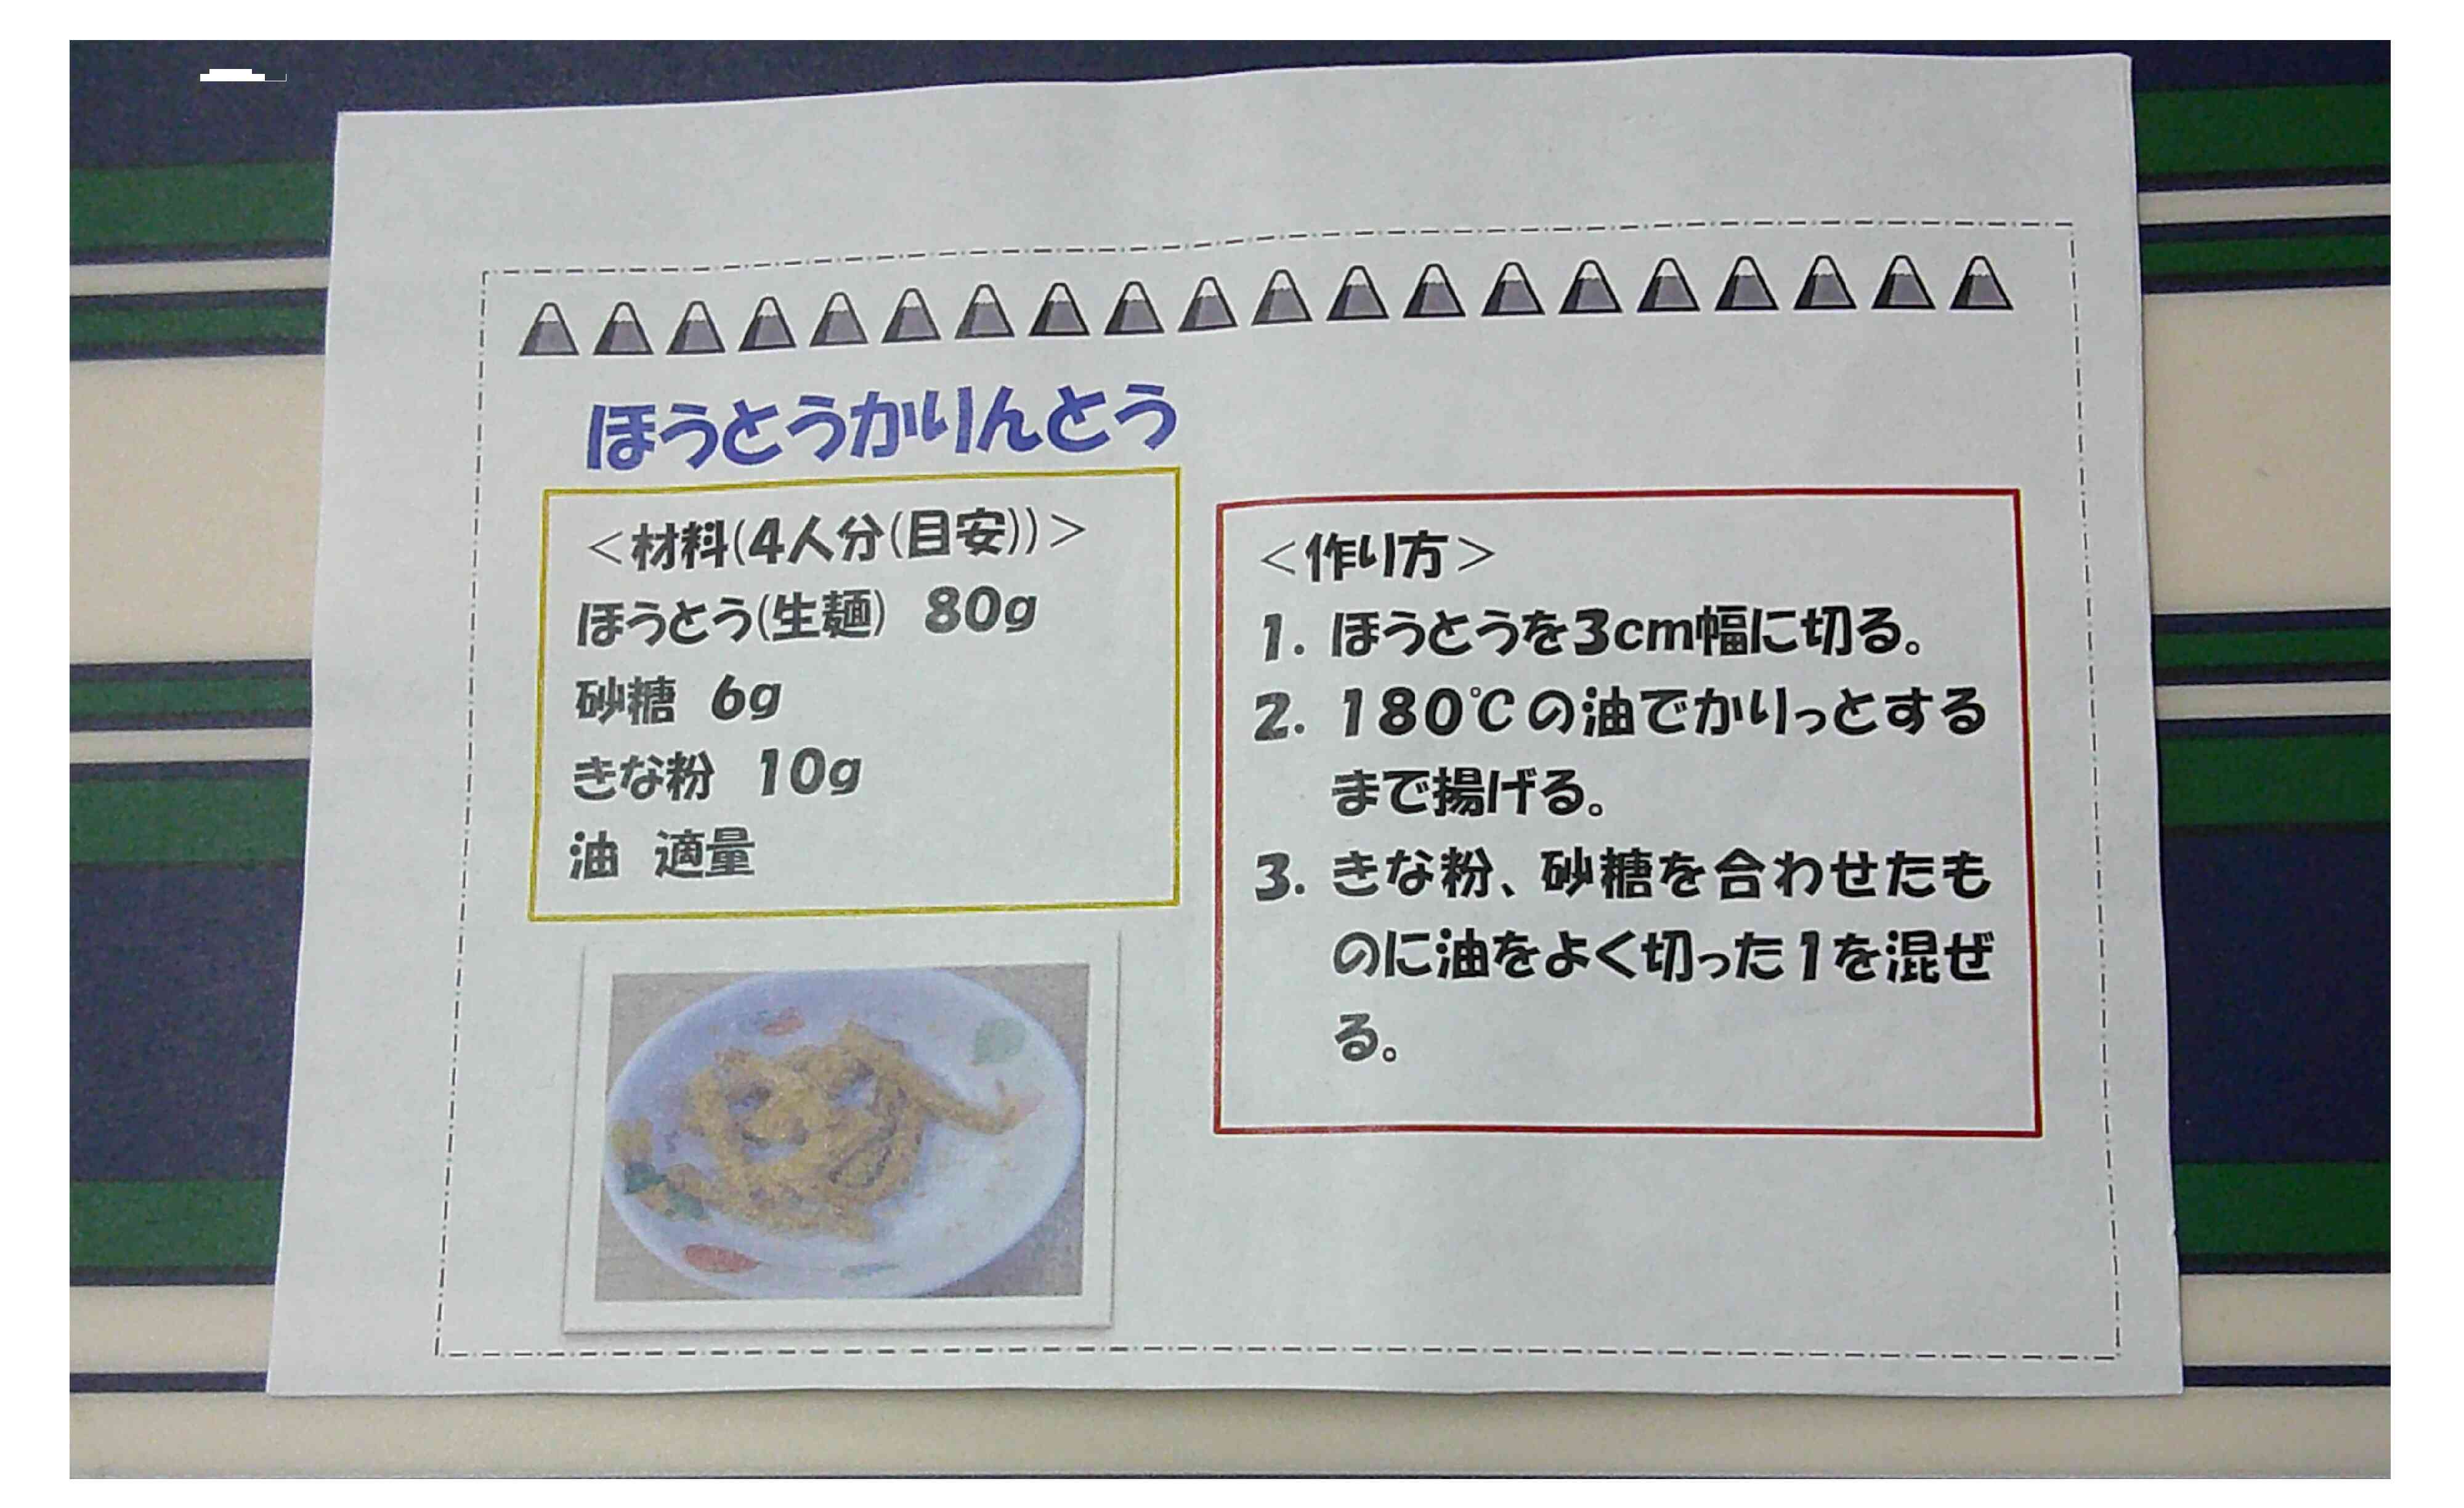 ほうとうかりんとう
＜材料(4人分(目安))＞
ほうとう(生麺) 80g
砂糖 6g
きな粉 10g
油 適量
＜作り方＞
1. ほうとうを3cm幅に切る。
2. 180℃の油でかりっとする
まで揚げる。
3. きな粉、砂糖を合わせたも
のに油をよく切った1を混ぜ
る。